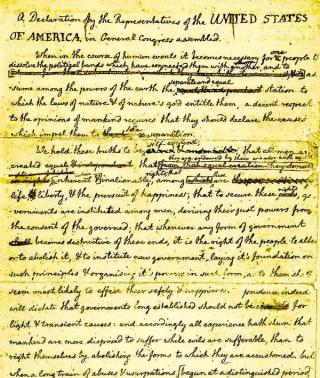 A Declaration by the Representatives of the UNITED STATES
OF AMERICA, in General Congress assembled.
When in the course of human events it becomes necessary for one people to
dissolve the political bands which have connected them with another, and to
as-
separate and equal
sume among the powers of the earth the station to
which the laws of nature & of nature's god entitle them, a decent respect
to the opinions of mankind requires that they should declare the causes
which impel them to the separation.
self-evident
We hold these truths to be that all men are
they are endowed by their creator with
created equal
rights; that
inherent & inalienable among these are
life, liberty, & the pursuit of happiness; that to secure these rights, go-
vernments are instituted among men, deriving their just powers from
the consent of the governed; that whenever any form of government
becomes destructive of these ends, it is the right of the people to alter
or to abolish it, & to institute new government, laying it's foundation on
such principles & organising it's powers in such form, as to them shall
seem most likely to effect their safety & happiness. prudence indeed
will dictate that governments long established should not be changed for
light & transient causes: and accordingly all experience hath shewn that
mankind are more disposed to suffer while evils are sufferable, than to
right themselves by abolishing the forms to which they are accustomed. but
when a long train of abuses & usurpations [begun at a distinguished period